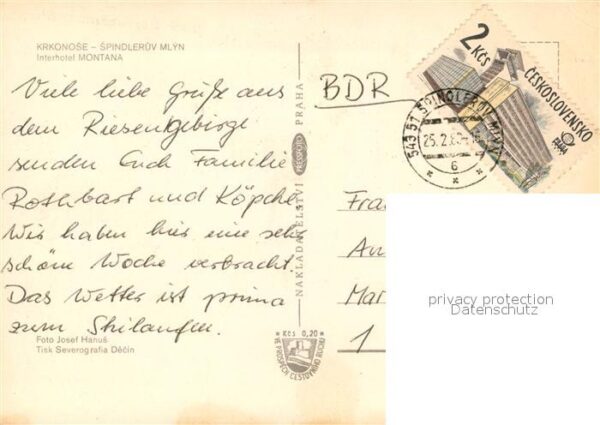 KRKONOŠE – ŠPINDLERŮV MLÝN
Interhotel MONTANA
Viele liebe Grüße aus
dem Riesengebirge
senden Euch Familie
Rothbart und Köpche
Wir haben hier eine sehr
schöne Woche verbracht.
Das Wetter ist prima
zum Skilaufen.
Foto Josef Hanuš
Tisk Severografia Děčín
NAKLADATELSTVÍ PRESSFOTO PRAHA
Kčs 0,20
VE PROSPĚCH CESTOVNÍHO RUCHU
BDR
2 Kčs
ČESKOSLOVENSKO
543 51 ŠPINDLERŮV MLÝN
25.2.8
6
Fra
An
Mar
1
privacy protection
Datenschutz